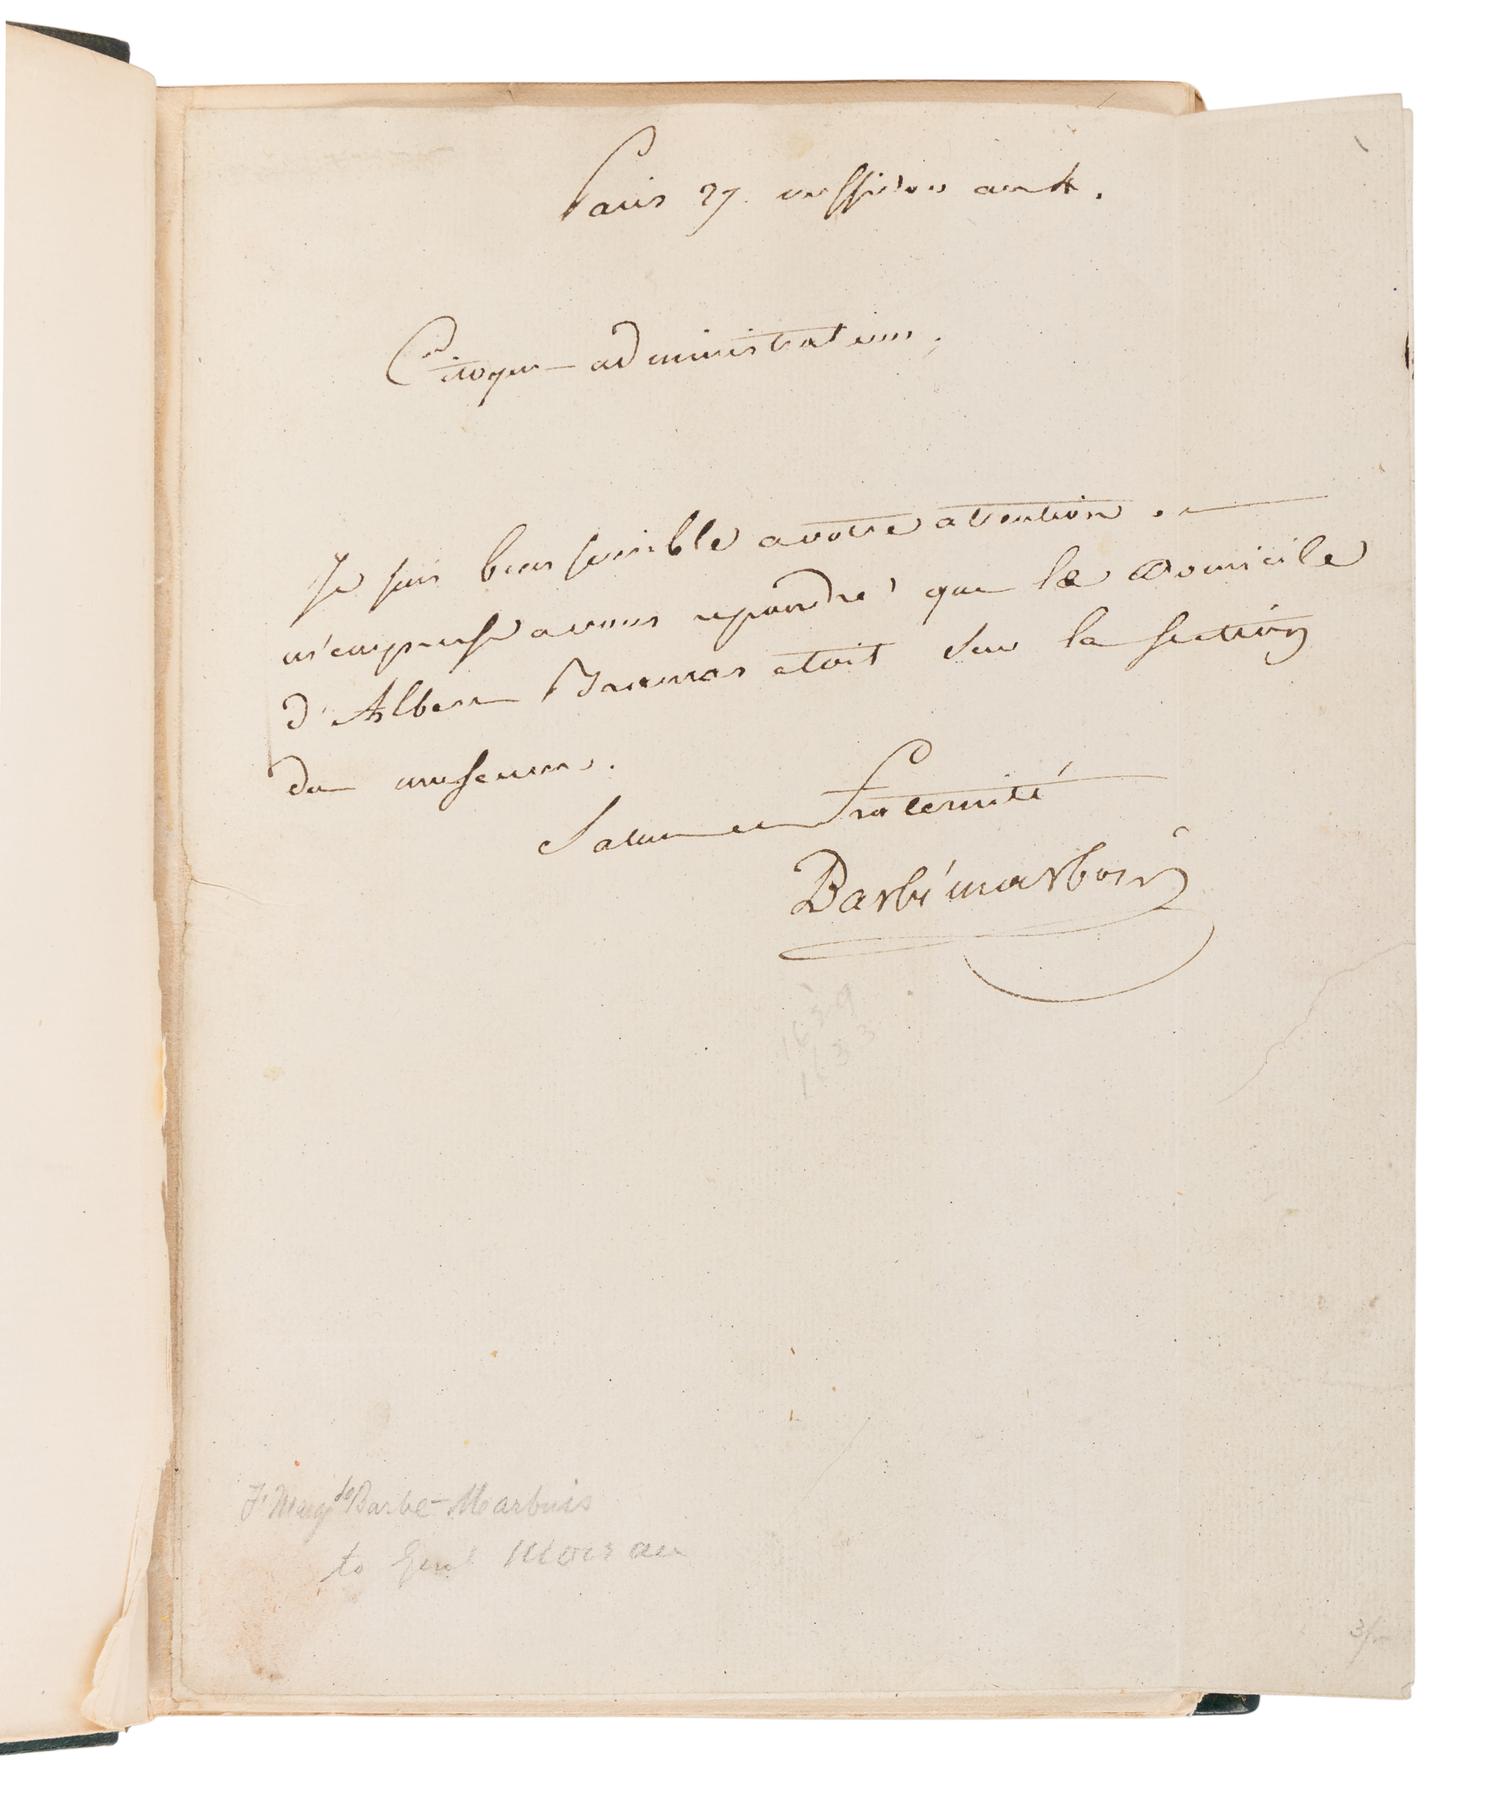 Paris 27. messidor an 4.
Citoyen administrateur,
Je suis bien sensible a votre attention.
m'empresse a vous repondre que le Domicile
d'Albert etoit Sur la section
du museum.
Salut et Fraternité
Barbé marbois
1639
1633
Fs Marqs de Barbe-Marbois
to Genl Moreau